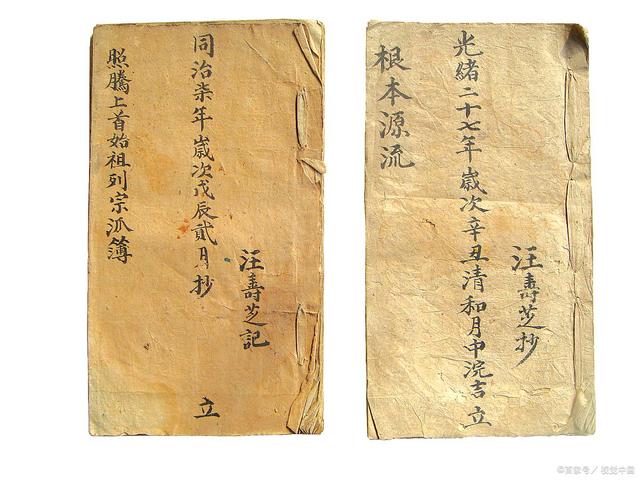 汪壽芝記
同治柒年歲次戊辰貳月抄 立
照騰上首始祖列宗泒簿
汪壽芝抄
光緒二十七年歲次辛丑清和月中浣吉立
根本源流
©百家号／视觉中国